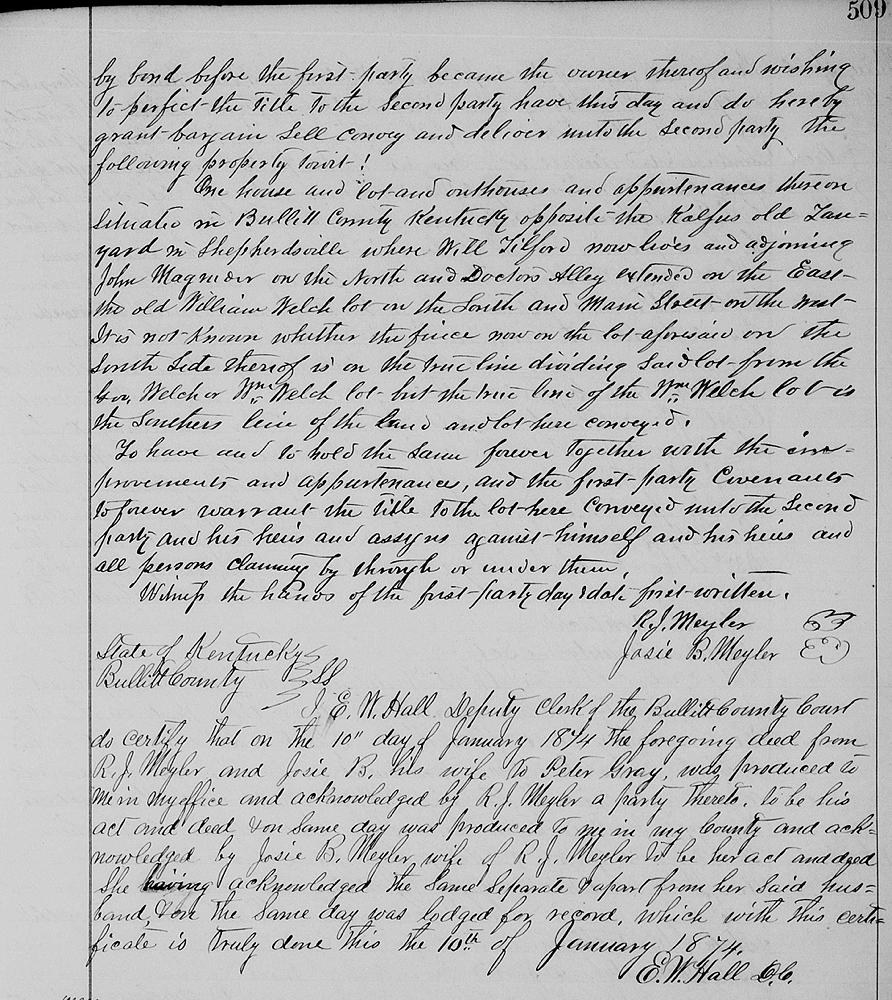 509
by bond before the first party became the owner thereof and wishing
to perfect the title to the second party have this day and do hereby
grant bargain sell convey and deliver unto the second party the
following property towit!
One house and lot and outhouses and appurtenances thereon
Situated in Bullitt County Kentucky opposite the Kalfus old Tan=
yard in Shepherdsville where Will Tilford now lives and adjoining
John Magruder on the North and Doctors Alley extended on the East
the old William Welch lot on the South and Main Street on the west
It is not known whether the fence now on the lot aforesaid on the
South Side thereof is on the true line dividing Said lot from the
Welch or Wm Welch lot but the true line of the Wm Welch lot is
the Southern line of the land and lot here conveyed.
To have and to hold the same forever together with the im-
provements and appurtenances, and the first party Covenants
to forever warrant the title to the lot here conveyed unto the Second
party and his heirs and assigns against himself and his heirs and
all persons claiming by through or under them,
Witness the hands of the first party day & date first written.
R. J. Meyler
Josie B. Meyler
State of Kentucky
Bullitt County SS
I E. W. Hall Deputy Clerk of the Bullitt County Court
do certify that on the 10" day of January 1874 the foregoing deed from
R. J. Meyler and Josie B. his wife to Peter Gray, was produced to
me in my office and acknowledged by R. J. Meyler a party thereto. to be his
act and deed & on same day was produced to me in my County and ack=
nowledged by Josie B. Meyler wife of R. J. Meyler to be her act and deed
She having acknowledged the same separate & apart from her said hus=
band, & on the same day was lodged for record, which with this certi=
ficate is truly done this the 10th of January 1874.
E. W. Hall D.C.